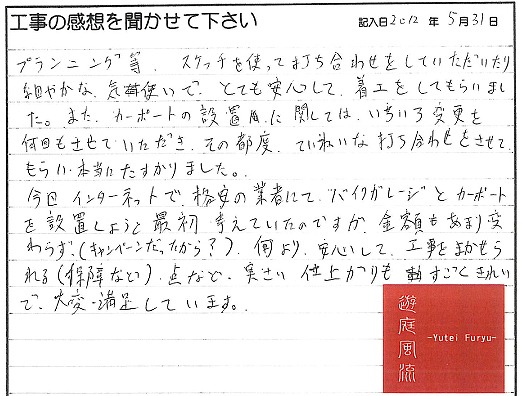 工事の感想を聞かせて下さい
記入日2012年5月31日
プランニング等、スケッチを使って打ち合わせをしていただいたり
細やかな気遣いで、とても安心して、着工をしてもらいまし
た。また、カーポートの設置に関しては、いろいろ変更を
何回もさせていただき、その都度、ていねいな打ち合わせをさせて
もらい本当にたすかりました。
今回インターネットで、格安の業者にて"バイクガレージ"とカーポート
を設置しようと最初考えていたのですが、金額もあまり変
わらず、(キャンペーンだったから?)、何より、安心して、工事をまかせら
れる(保障など)、点など、実さい仕上がりもすごくきれい
で、大変満足しています。
遊庭風流
-Yutei Furyu-